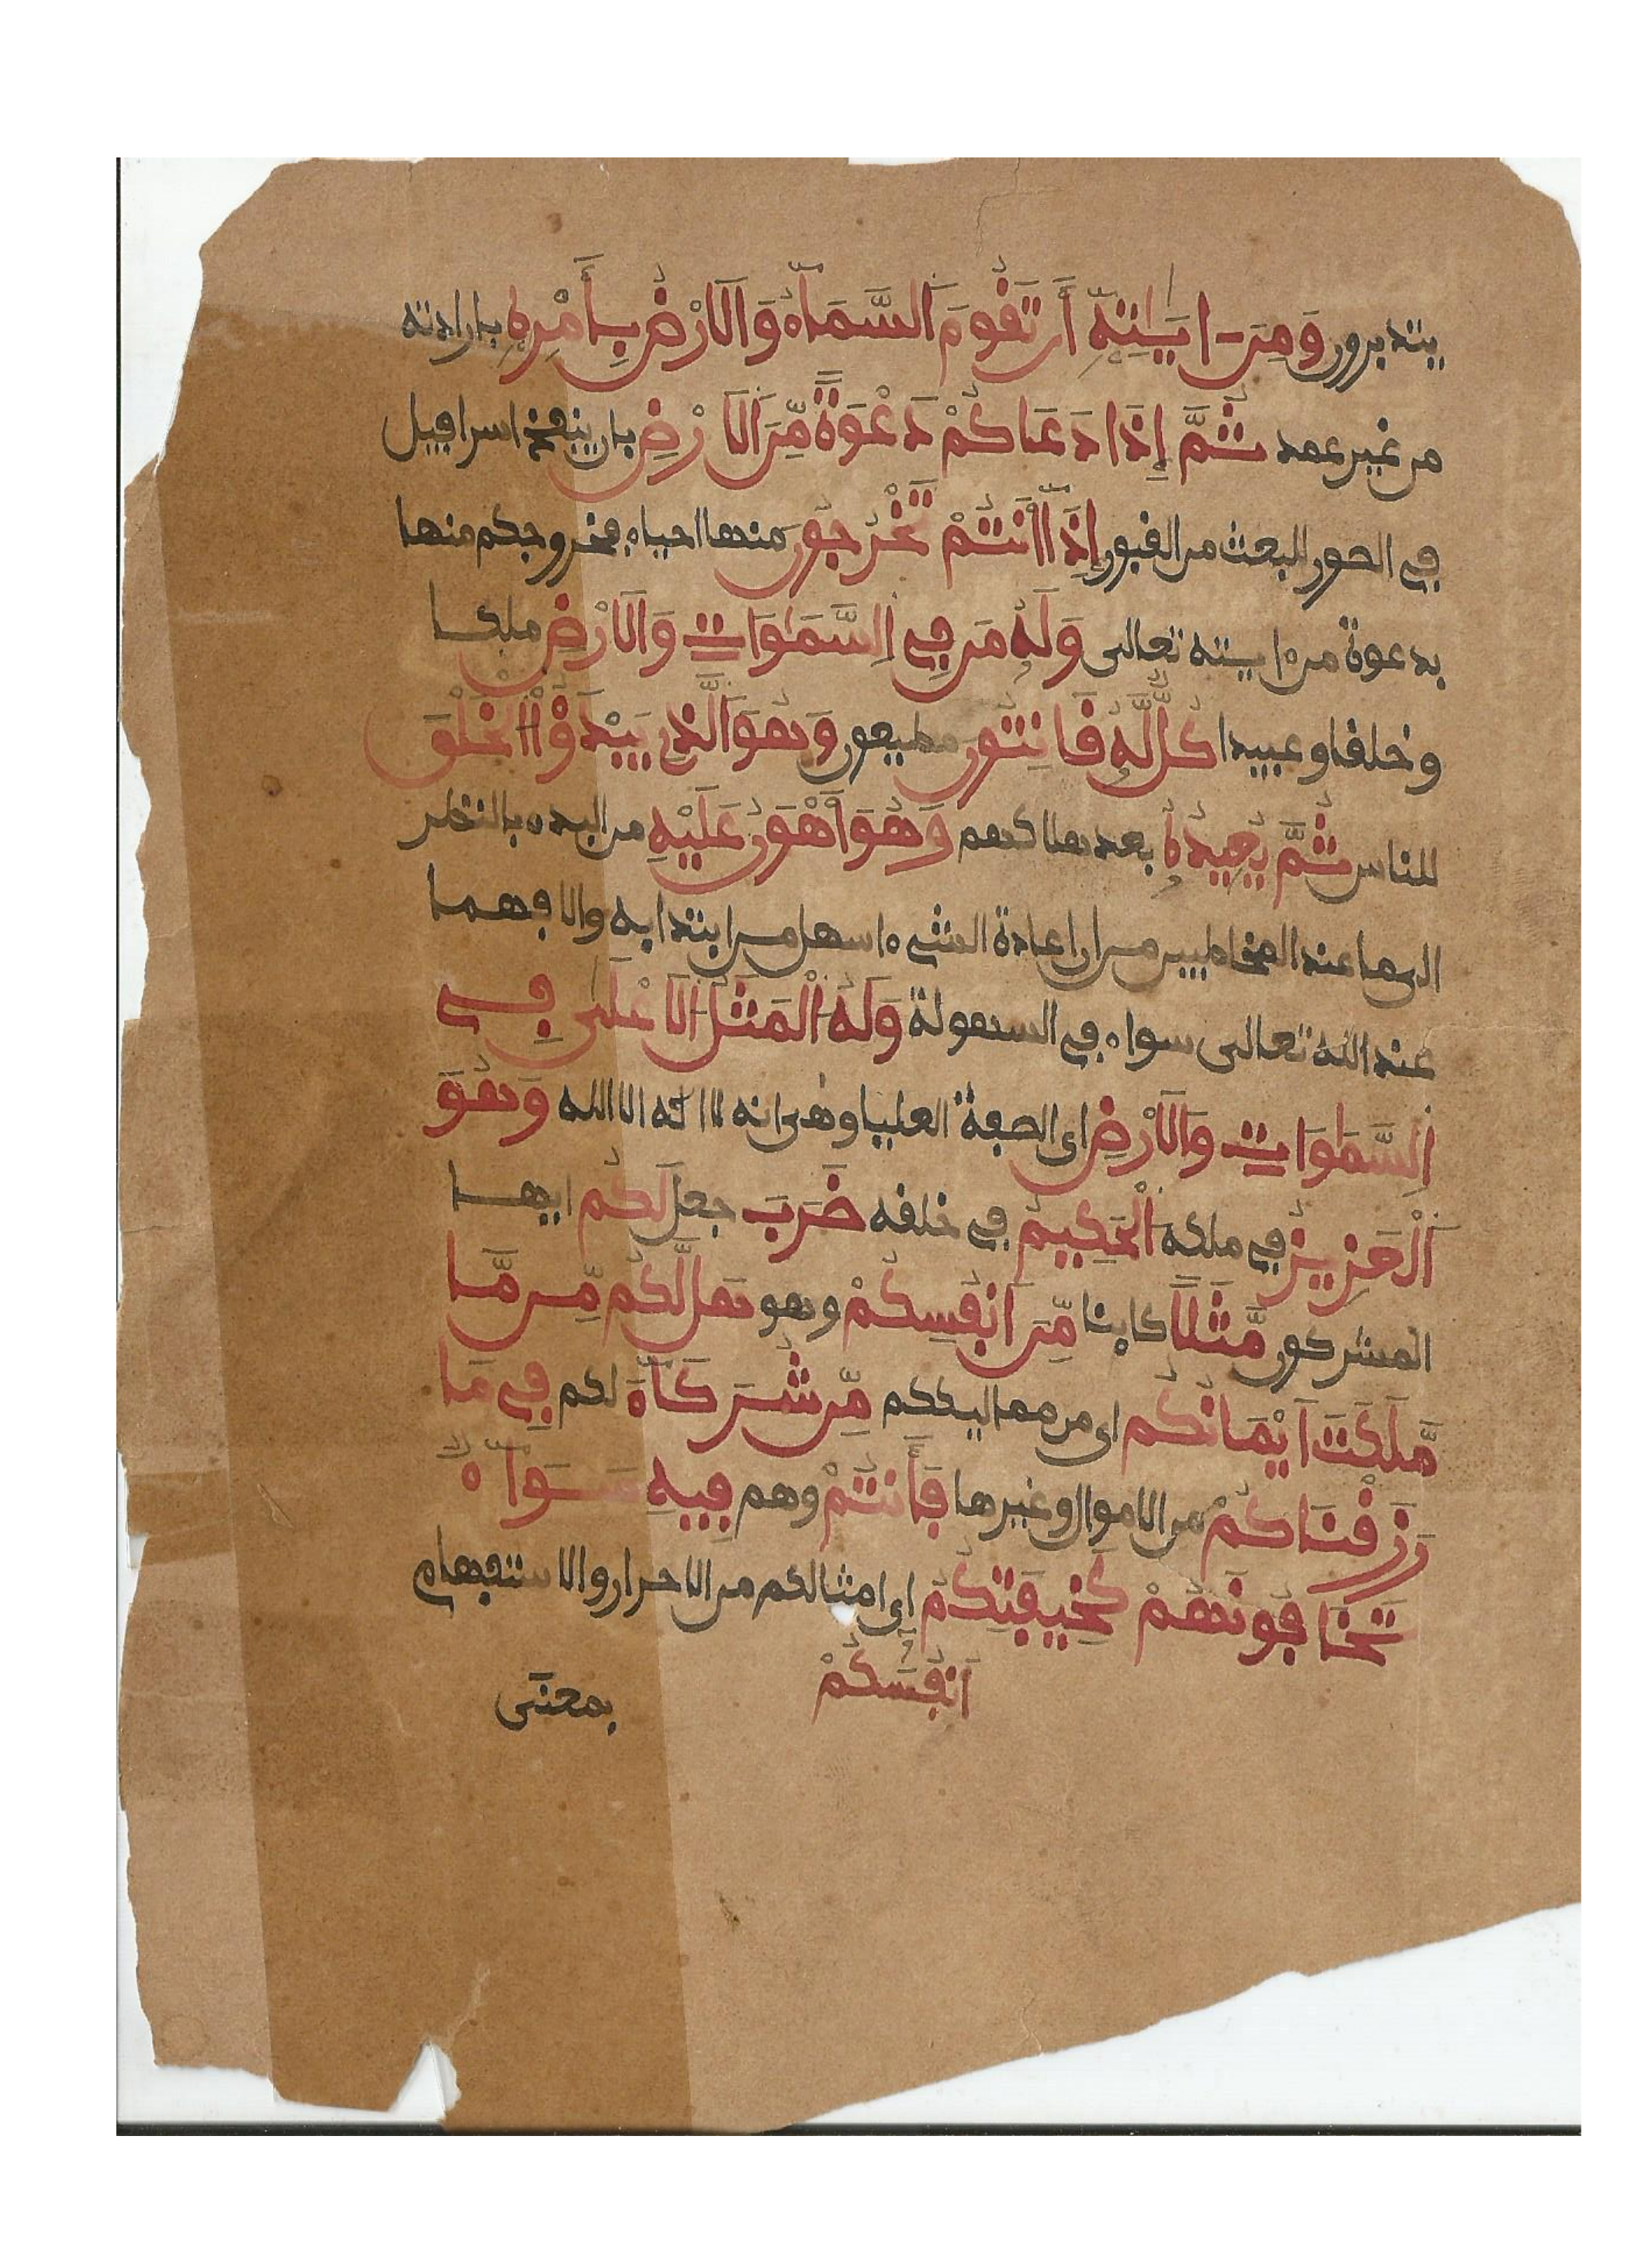 يتدبرون وَمِنَ ايَـٰتِهِ أَن تَقُومَ اَلسَّمَآءُ وَالَارْضُ بِأَمْرِهِ بارادته
من غير عمد ثُمَّ إِذَا دَعَاكُمْ دَعْوَةً مِّنَ الَارْضِ بان ينفخ اسرافيل
في الصور للبعث من القبور إِذَآ أَنتُمْ تَخْرُجُونَ منها احياء فخروجكم منها
بدعوة من ءايـته تعالى وَلَهُ مَن فِي اِلسَّمَٰوَاتِ وَالَارْضِ ملكا
وخلقا وعبيدا كُلٌّ لَّهُ قَانِتُونَ مطيعون وَهُوَ اَلَّذِي يَبْدَؤُاْ اَلْخَلْقَ
للناس ثُمَّ يُعِيدُهُ بعد هلاكهم وَهُوَ أَهْوَنُ عَلَيْهِ من البدء بالنظر
الى ما عند المخاطبين من ان اعادة الشيء اسهل من ابتدايه والا فهما
عند الله تعالى سواء في السهولة وَلَهُ اَلْمَثَلُ الَاعْلَى فِي
اِلسَّمَٰوَاتِ وَالَارْضِ اى الصفة العليا وهى انه لا اله الا الله وَهُوَ
اَلْعَزِيزُ في ملكه اَلْحَكِيمُ في خلقه ضَرَبَ جعل لَكُم ايها
المشركون مَّثَلًا كاينا مِّنَ اَنفُسِكُمْ وهو هَل لَّكُم مِّن مَّا
مَّلَكَتَ اَيْمَانُكُم اى من مماليككم مِّن شُرَكَآءَ لكم فِي مَا
رَزَقْنَاكُمْ من الاموال وغيرها فَأَنتُمْ وهم فِيهِ سَوَآءٌ
تَخَافُونَهُمْ كَخِيفَتِكُمُ اى امثالكم من الاحرار والاستفهام
أَنفُسَكُمْ بمعنى